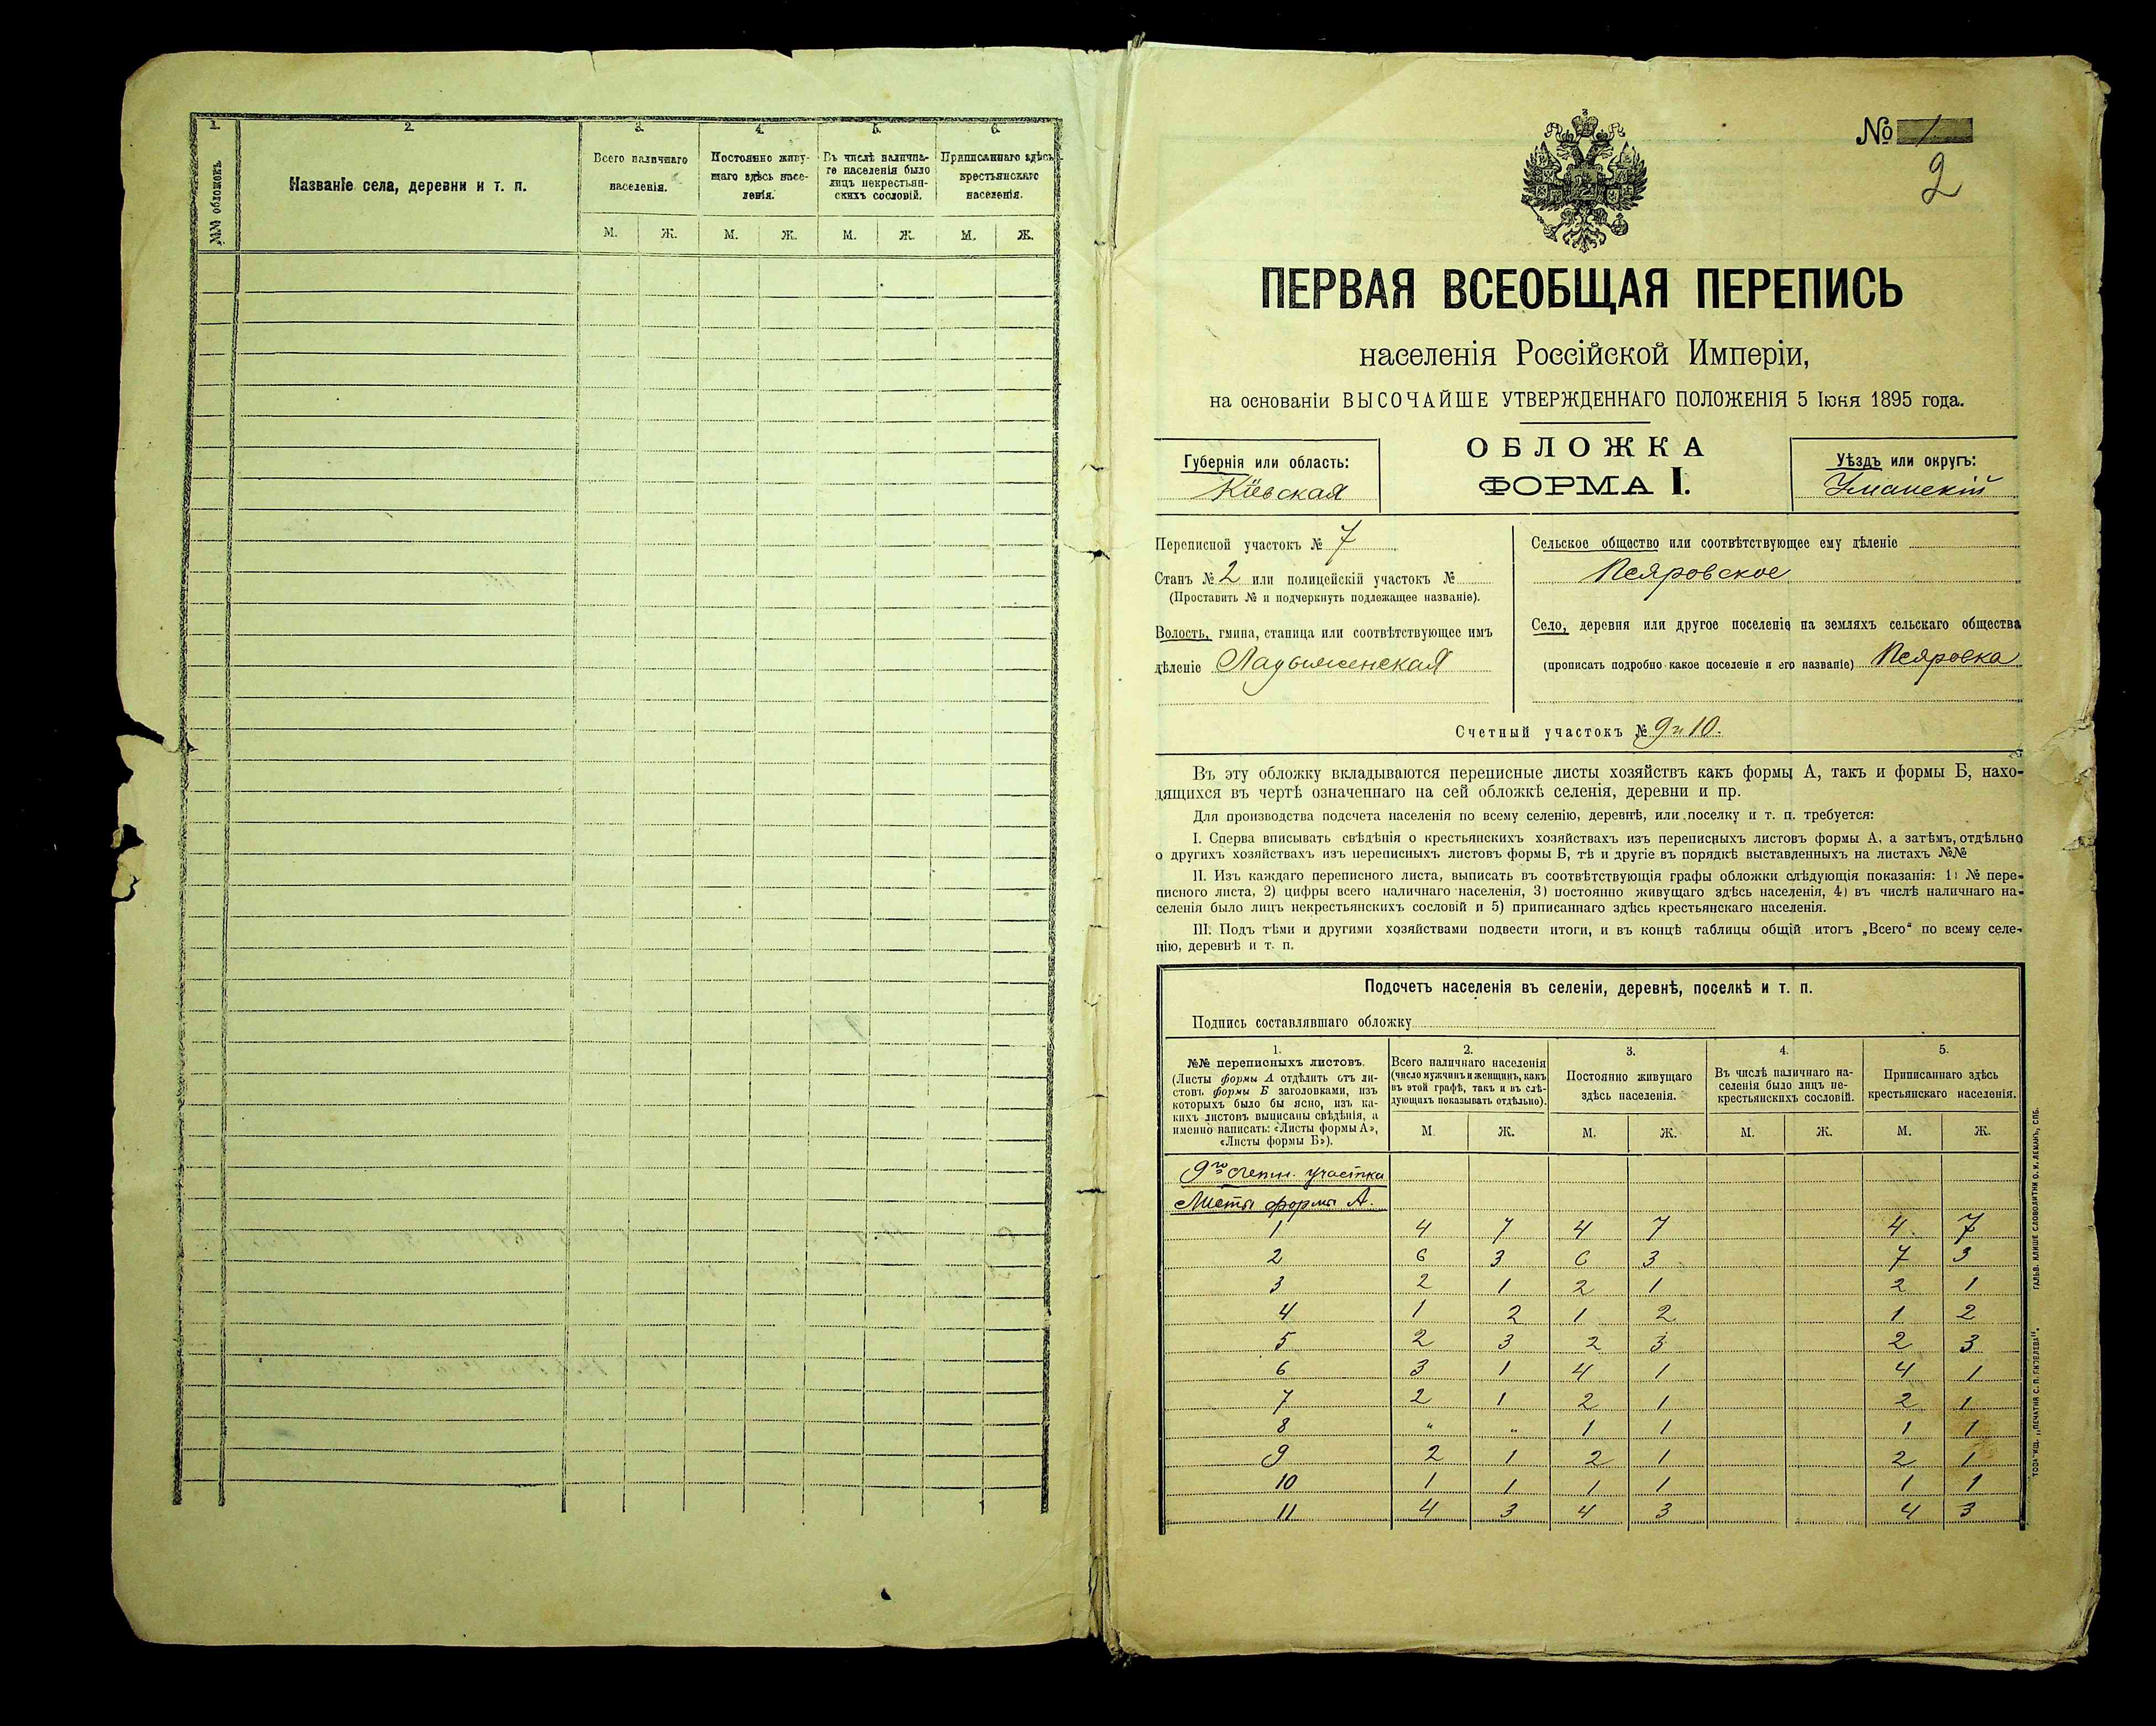 1. 2. 3. 4. 5. 6.
№№ обложекъ
Названіе села, деревни и т. п.
Всего наличнаго населенія.
Постоянно живу-щаго здѣсь насе-ленія.
Въ числѣ налична-го населенія было лицъ некрестьян-скихъ сословій.
Приписаннаго здѣсь крестьянскаго населенія.
М. Ж. М. Ж. М. Ж. М. Ж.
№ 1
2
ПЕРВАЯ ВСЕОБЩАЯ ПЕРЕПИСЬ
населенія Россійской Имперіи,
на основаніи ВЫСОЧАЙШЕ УТВЕРЖДЕННАГО ПОЛОЖЕНІЯ 5 Іюня 1895 года.
Губернія или область:
Кіевская
ОБЛОЖКА
ФОРМА I.
Уѣздъ или округъ:
Уманскій
Переписной участокъ № 7
Станъ № 2 или полицейскій участокъ №
(Проставить № и подчеркнуть подлежащее названіе).
Волость, гмина, станица или соотвѣтствующее имъ
дѣленіе Ладыженская
Сельское общество или соотвѣтствующее ему дѣленіе
Псяровское
Село, деревня или другое поселеніе на земляхъ сельскаго общества
(прописать подробно какое поселеніе и его названіе) Псяровка
Счетный участокъ № 9 и 10.
Въ эту обложку вкладываются переписные листы хозяйствъ какъ формы А, такъ и формы Б, нахо-
дящихся въ чертѣ означеннаго на сей обложкѣ селенія, деревни и пр.
Для производства подсчета населенія по всему селенію, деревнѣ, или поселку и т. п. требуется:
I. Сперва вписывать свѣдѣнія о крестьянскихъ хозяйствахъ изъ переписныхъ листовъ формы А, а затѣмъ, отдѣльно
о другихъ хозяйствахъ изъ переписныхъ листовъ формы Б, тѣ и другіе въ порядкѣ выставленныхъ на листахъ №№
II. Изъ каждаго переписного листа, выписать въ соотвѣтствующія графы обложки слѣдующія показанія: 1) № пере-
писного листа, 2) цифры всего наличнаго населенія, 3) постоянно живущаго здѣсь населенія, 4) въ числѣ наличнаго на-
селенія было лицъ некрестьянскихъ сословій и 5) приписаннаго здѣсь крестьянскаго населенія.
III. Подъ тѣми и другими хозяйствами подвести итоги, и въ концѣ таблицы общій итогъ „Всего“ по всему селе-
нію, деревнѣ и т. п.
Подсчетъ населенія въ селеніи, деревнѣ, поселкѣ и т. п.
Подпись составлявшаго обложку
1. 2. 3. 4. 5.
№№ переписныхъ листовъ.
(Листы формы А отдѣлить отъ ли-
стовъ формы Б заголовками, изъ
которыхъ было бы ясно, изъ ка-
кихъ листовъ выписаны свѣдѣнія, а
именно написать: «Листы формы А»,
«Листы формы Б»).
Всего наличнаго населенія
(число мужчинъ и женщинъ, какъ
въ этой графѣ, такъ и въ слѣ-
дующихъ показывать отдѣльно).
Постоянно живущаго
здѣсь населенія.
Въ числѣ наличнаго на-
селенія было лицъ не-
крестьянскихъ сословій.
Приписаннаго здѣсь
крестьянскаго населенія.
М. Ж. М. Ж. М. Ж. М. Ж.
9го счетн. участка
Листы формы А.
1 4 7 4 7 4 7
2 6 3 6 3 7 3
3 2 1 2 1 2 1
4 1 2 1 2 1 2
5 2 3 2 3 2 3
6 3 1 4 1 4 1
7 2 1 2 1 2 1
8 " " 1 1 1 1
9 2 1 2 1 2 1
10 1 1 1 1 1 1
11 4 3 4 3 4 3
ГАЛЬВ. КЛИШЕ СЛОВОЛИТНИ О. И. ЛЕМАНЪ, СПБ.
ТОВАРИЩ. „ПЕЧАТНЯ С. П. ЯКОВЛЕВА“.